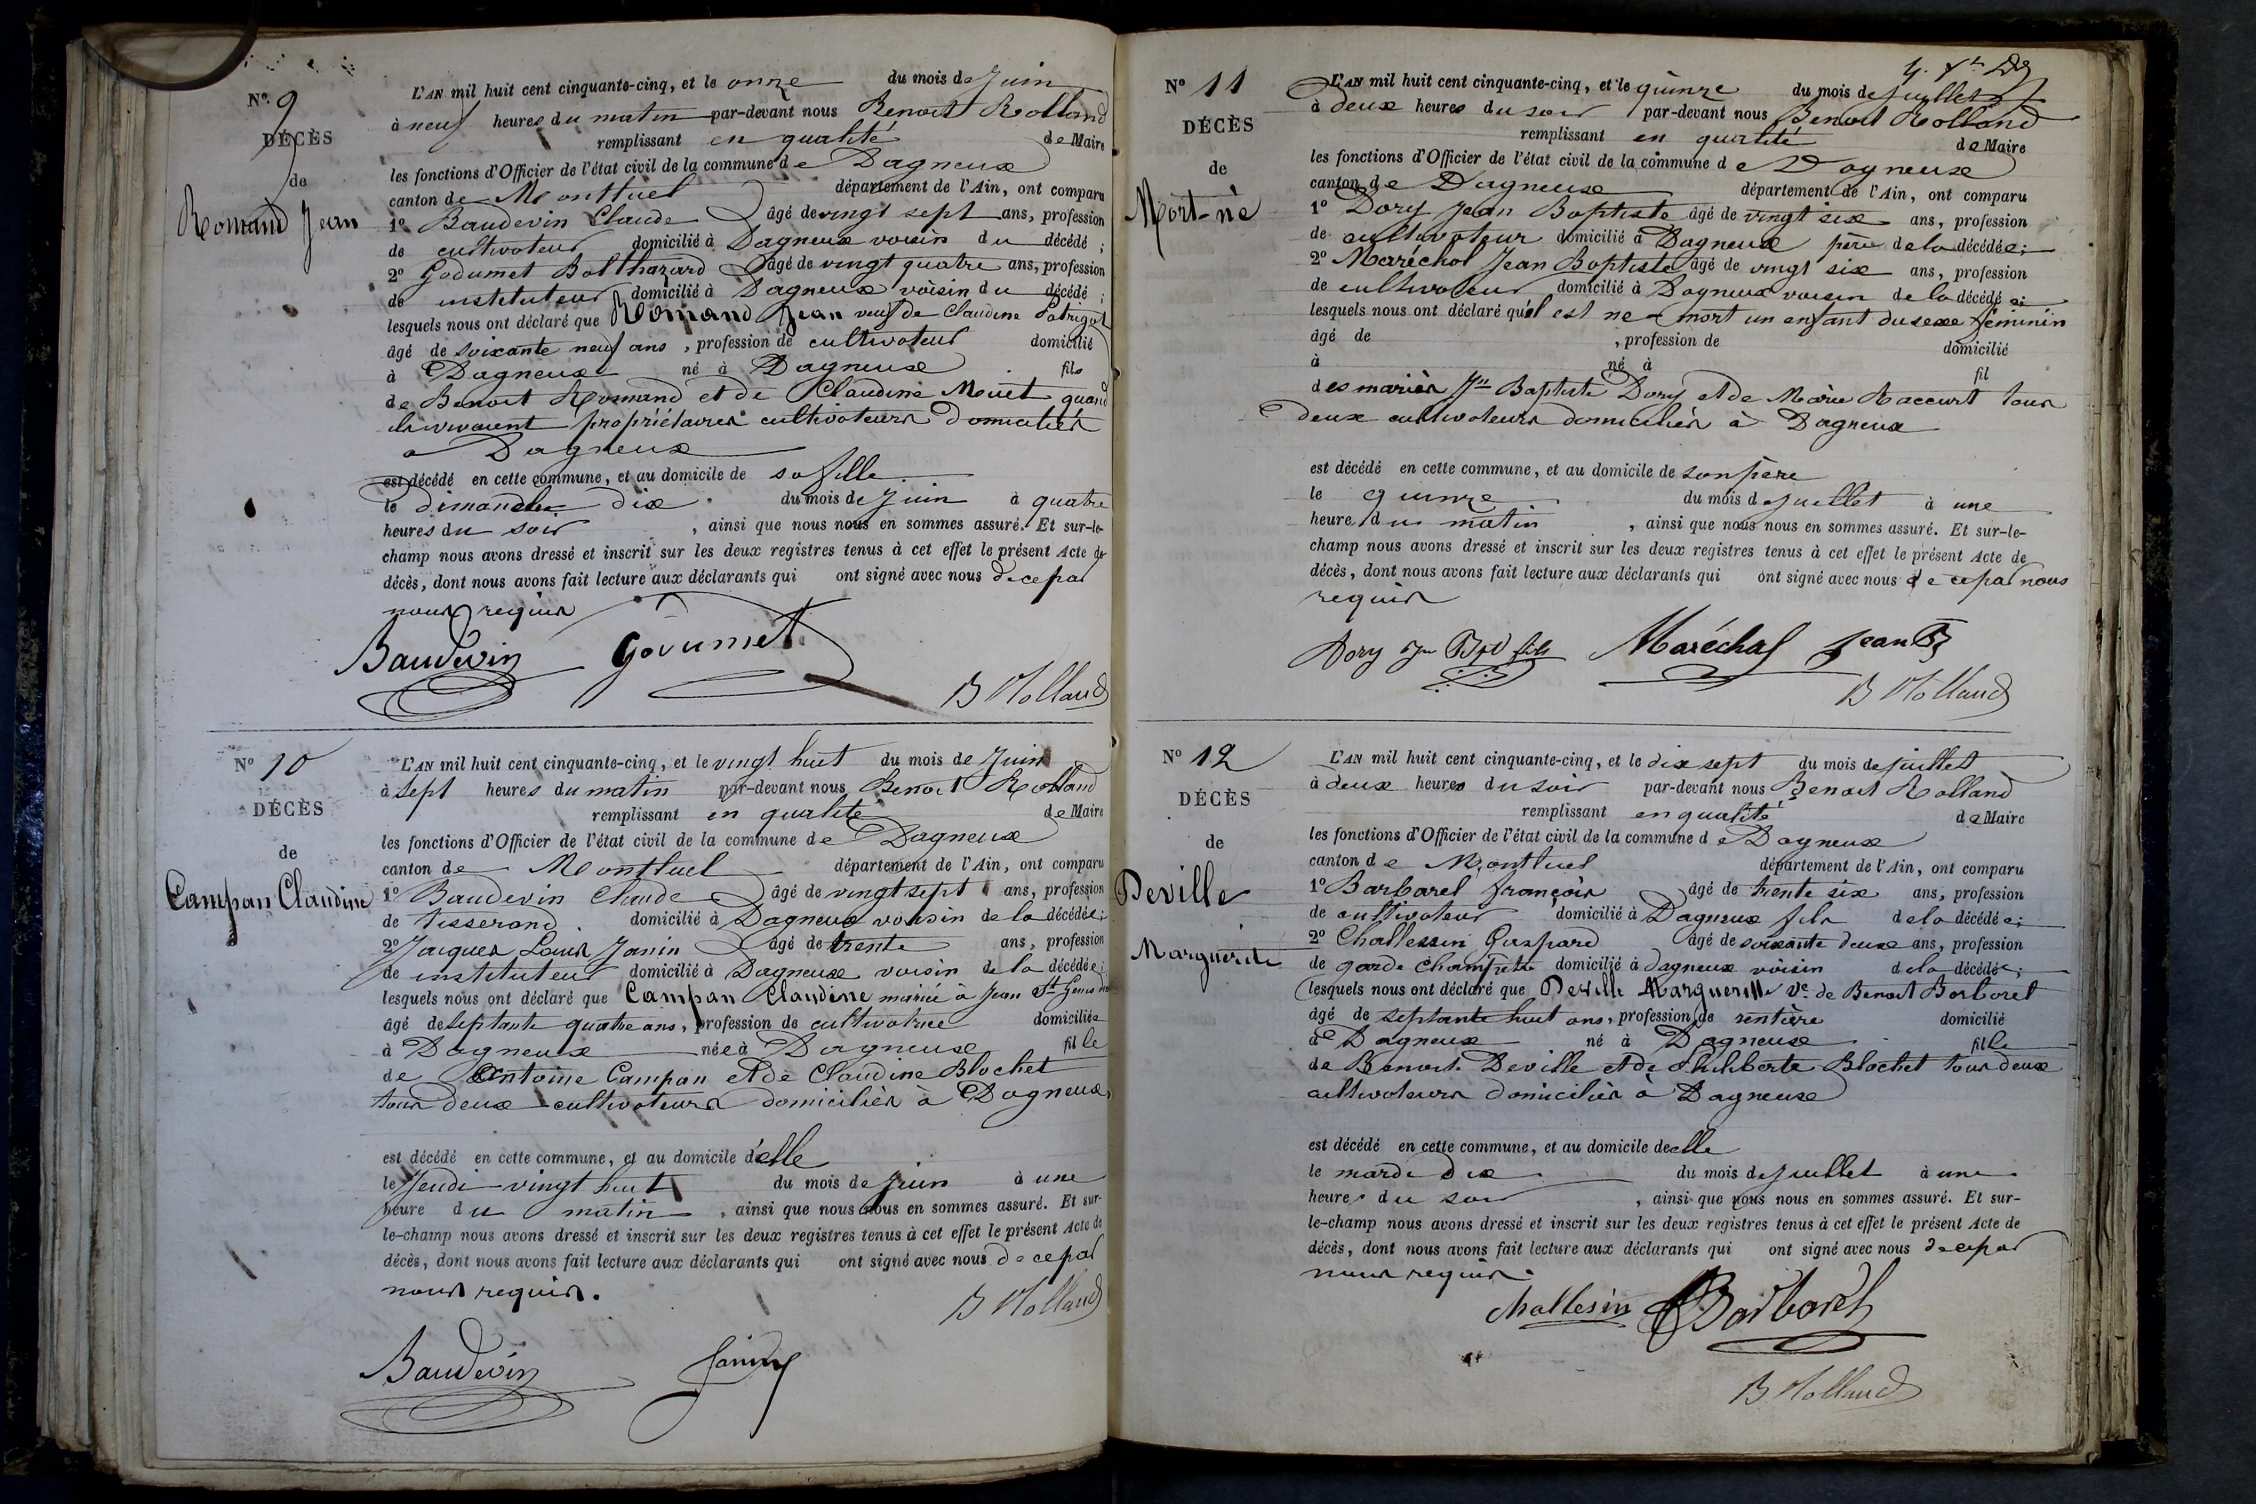 Nº 9
DÉCÈS
de
Romand Jean
L'AN mil huit cent cinquante-cinq, et le onze du mois de Juin
à neuf heures du matin par-devant nous Benoit Rolland
remplissant en qualité de Maire
les fonctions d'Officier de l'état civil de la commune de Dagneux
canton de Montluel département de l'Ain, ont comparu
1º Baudevin Claude âgé de vingt sept ans, profession
de cultivateur domicilié à Dagneux voisin du décédé ;
2º Godumet Balthazard âgé de vingt quatre ans, profession
de instituteur domicilié à Dagneux voisin du décédé ;
lesquels nous ont déclaré que Romand Jean veuf de Claudine
âgé de soixante neuf ans, profession de cultivateur domicilié
à Dagneux né à Dagneux fils
de Benoit Romand et de Claudine Mouet quand
ils vivaient propriétaires cultivateurs domiciliés
à Dagneux
est décédé en cette commune, et au domicile de sa fille
le dimanche dix du mois de Juin à quatre
heures du soir, ainsi que nous nous en sommes assuré. Et sur-le-
champ nous avons dressé et inscrit sur les deux registres tenus à cet effet le présent Acte de
décès, dont nous avons fait lecture aux déclarants qui ont signé avec nous de ce par
nous requis
Baudevin Godumet
B Rolland
Nº 10
DÉCÈS
de
Campan Claudine
L'AN mil huit cent cinquante-cinq, et le vingt huit du mois de Juin
à sept heures du matin par-devant nous Benoit Rolland
remplissant en qualité de Maire
les fonctions d'Officier de l'état civil de la commune de Dagneux
canton de Montluel département de l'Ain, ont comparu
1º Baudevin Claude âgé de vingt sept ans, profession
de tisserand domicilié à Dagneux voisin de la décédée ;
2º Jacques Louis Janin âgé de trente ans, profession
de instituteur domicilié à Dagneux voisin de la décédée ;
lesquels nous ont déclaré que Campan Claudine mariée à Jean St
âgé de septante quatre ans, profession de cultivatrice domiciliée
à Dagneux née à Dagneux fille
de Antoine Campan et de Claudine Blochet
tous deux cultivateurs domiciliés à Dagneux
est décédé en cette commune, et au domicile d'elle
le Jeudi vingt huit du mois de Juin à une
heure du matin, ainsi que nous nous en sommes assuré. Et sur-
le-champ nous avons dressé et inscrit sur les deux registres tenus à cet effet le présent Acte de
décès, dont nous avons fait lecture aux déclarants qui ont signé avec nous de ce par
nous requis.
B Rolland
Baudevin Janin
Nº 11
DÉCÈS
de
Mort-né
L'AN mil huit cent cinquante-cinq, et le quinze du mois de juillet
à deux heures du soir par-devant nous Benoit Rolland
remplissant en qualité de Maire
les fonctions d'Officier de l'état civil de la commune de Dagneux
canton de Dagneux département de l'Ain, ont comparu
1º Dory Jean Baptiste âgé de vingt six ans, profession
de cultivateur domicilié à Dagneux père de la décédée ;
2º Maréchal Jean Baptiste âgé de vingt six ans, profession
de cultivateur domicilié à Dagneux voisin de la décédée ;
lesquels nous ont déclaré qu'il est né mort un enfant du sexe féminin
âgé de , profession de domicilié
à né à fil
des mariés Jn Baptiste Dory et de Marie Raccurt tous
deux cultivateurs domiciliés à Dagneux
est décédé en cette commune, et au domicile de son père
le quinze du mois de Juillet à une
heure du matin, ainsi que nous nous en sommes assuré. Et sur-le-
champ nous avons dressé et inscrit sur les deux registres tenus à cet effet le présent Acte de
décès, dont nous avons fait lecture aux déclarants qui ont signé avec nous de ce par nous
requis
Dory Jn Bpt fils Maréchal Jean B
B Rolland
Nº 12
DÉCÈS
de
Deville
Marguerite
L'AN mil huit cent cinquante-cinq, et le dix sept du mois de juillet
à deux heures du soir par-devant nous Benoit Rolland
remplissant en qualité de Maire
les fonctions d'Officier de l'état civil de la commune de Dagneux
canton de Montluel département de l'Ain, ont comparu
1º Barbarel françois âgé de trente six ans, profession
de cultivateur domicilié à Dagneux fils de la décédée ;
2º Challessin Gaspard âgé de soixante deux ans, profession
de garde champetre domicilié à dagneux voisin de la décédée ;
lesquels nous ont déclaré que Deville Marguerille Ve de Benoit Barbaret
âgé de septante huit ans, profession de rentière domicilié
à Dagneux né à Dagneux fille
de Benoit Deville et de Philiberte Blochet tous deux
cultivateurs domiciliés à Dagneux
est décédé en cette commune, et au domicile de elle
le mardi dix du mois de Juillet à une
heure du soir, ainsi que nous nous en sommes assuré. Et sur-
le-champ nous avons dressé et inscrit sur les deux registres tenus à cet effet le présent Acte de
décès, dont nous avons fait lecture aux déclarants qui ont signé avec nous de ce par
nous requis.
Challesin Barbaret
B Rolland